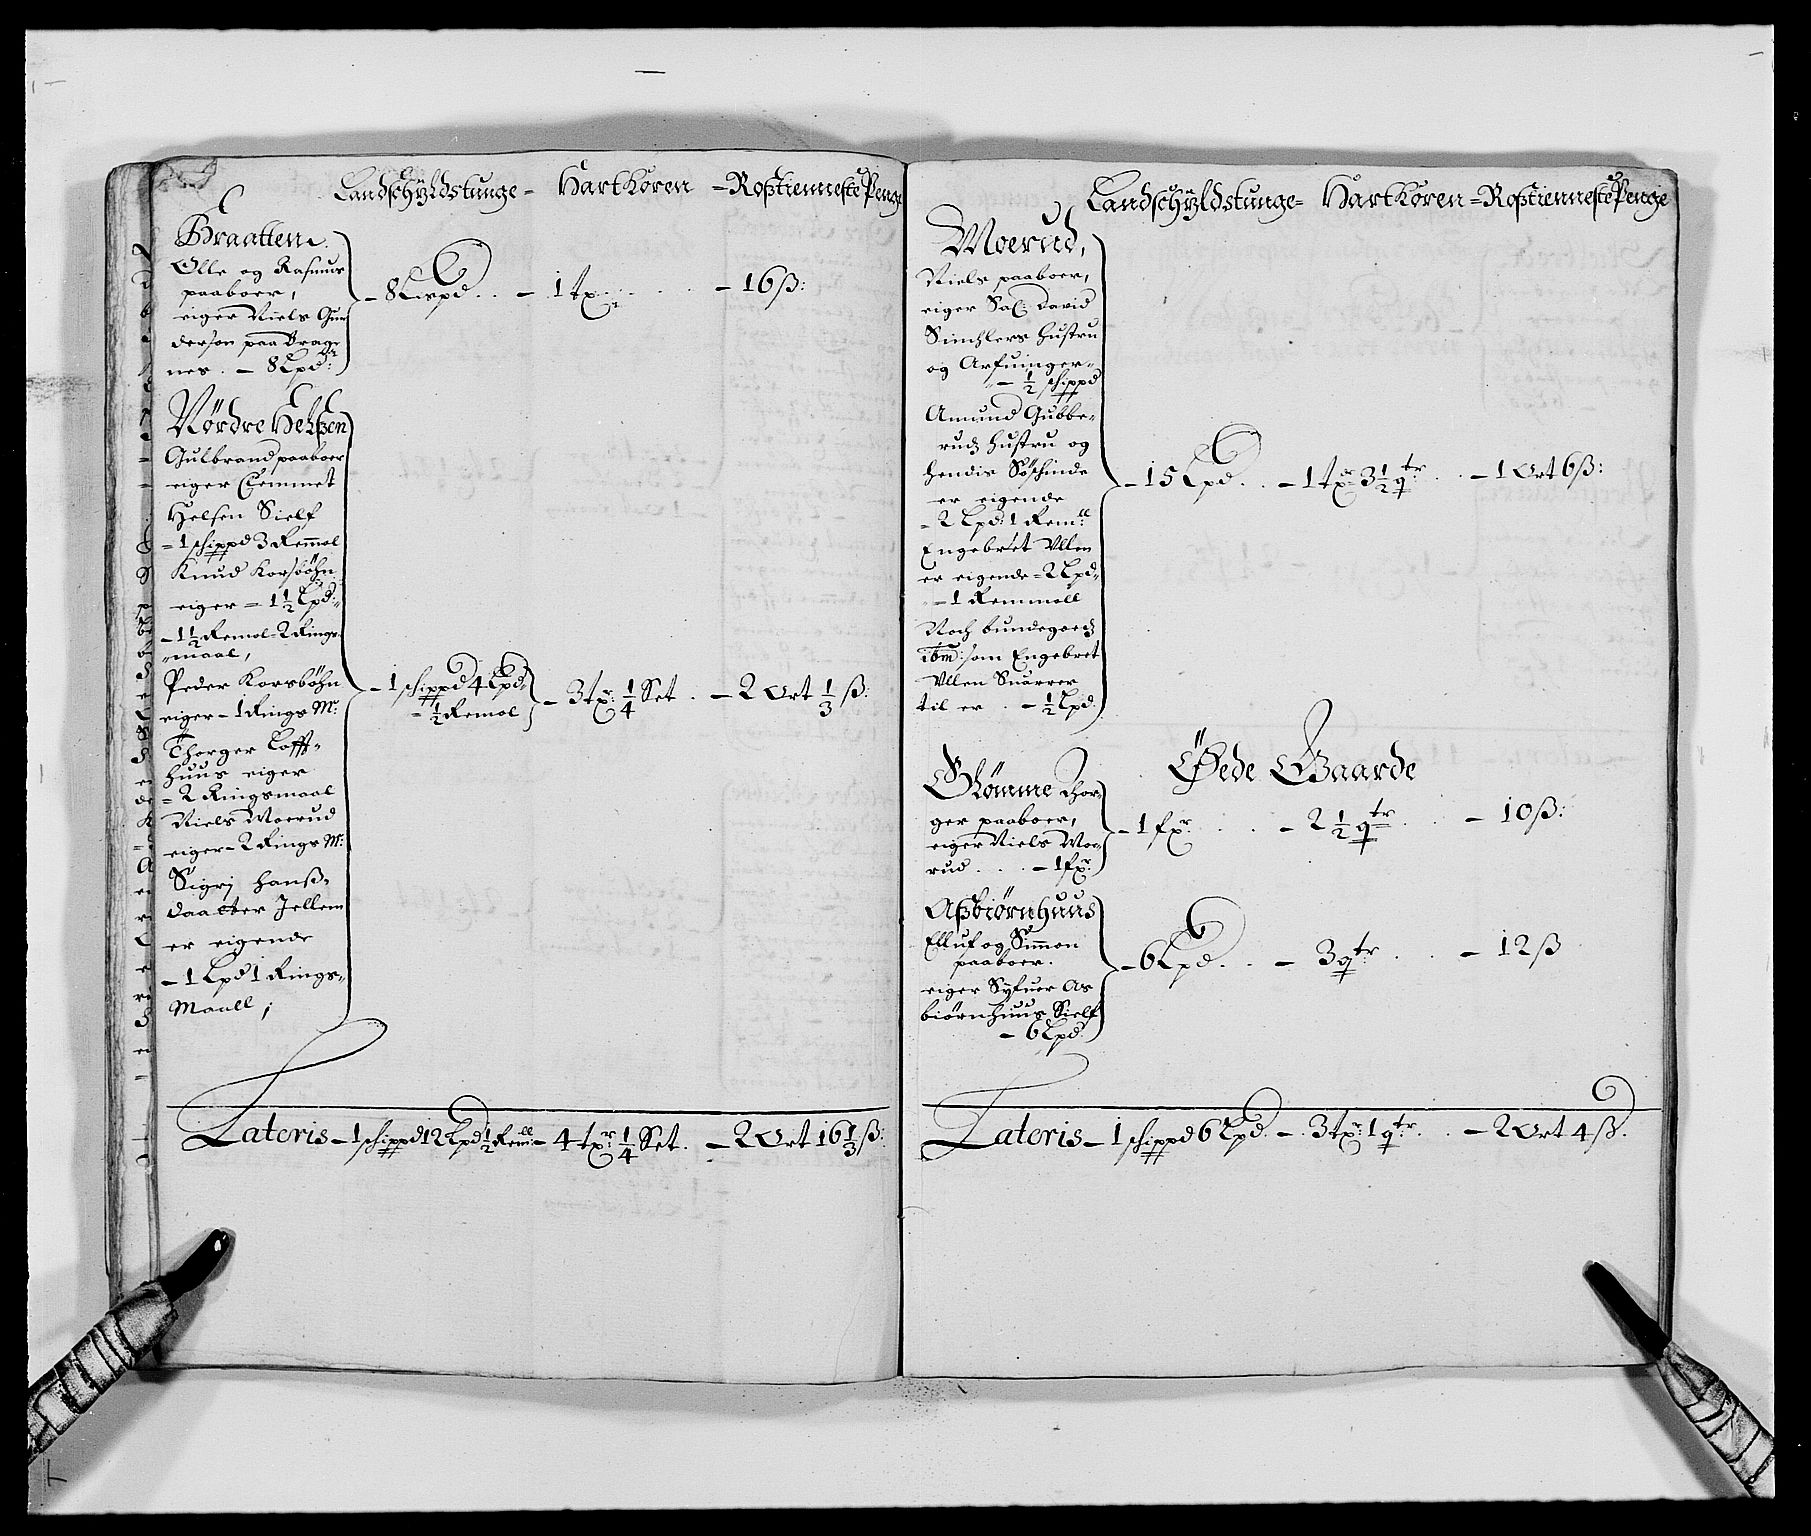 Landschÿldstunge - HartKoren - RoßtiennestePenge
Braatten
Olle og Rasmus
paaboer,
eiger Niels Gun
derson paa Brag
nes. - 8 Lpd:
- 8 Lispd. . - 1 txr . . . - 16 ß:
Nørdre Helßen
Gulbrand paaboer
eiger Clemmet
Helsen Sielf
= 1 schippd 3 Remol
Knud Korsbøhn
eiger = 1 1/2 Lpd:
- 1 1/2 Remol - 2 Rings-
maal,
Peder Korsbøhn
eiger - 1 Rings Mr:
Thorger Lofft-
huus eiger
= 2 Ringsmaal
Niels Moerud
eiger - 2 Rings Mr:
Sigrj Hanß-
daatter Jellem
er eigende
- 1 Lpd 1 Rings-
Maall;
- 1 schippd 4 Lpd:
- 1/2 Remol - 3 txr: 1/4 Set . - 2 Ort 1/3 ß:
Lateris - 1 schippd 12 Lpd 1/2 Remll - 4 txr 1/4 Set. - 2 Ort 16 1/3 ß:
Landschÿldstunge = HartKoren = RoßtiennestePenge
Moerud,
Niels paaboer,
eiger Sal: David
Sinchlers Hustru
og Arfuinger
- 1/2 schippd
Amund Gubbe-
rudz Hustru og
hendis Søschinde
er eigende
- 2 Lpd: 1 Remll
Engebret Vllen
er eigende - 2 Lpd
- 1 Remmell
Noch bundegoedz
ibm: som Engebret
Vllen Suarrer
til er . - 1/2 Lpd
- 15 Lpd . . - 1 txr 3 1/2 qtr . . - 1 Ort 6 ß:
Øede Gaarde
Glømme Thor-
ger paaboer,
eiger Niels Moe-
rud . . . - 1 fxr:
- 1 fxr . . . - 2 1/2 qtr . . - 10 ß:
Aßbiørnhuus
Elluf og Simon
paaboer.
eiger Syfuer As
biørnhuus Sielf
- 6 Lpd:
- 6 Lpd . . - 3 qtr . . . - 12 ß
Lateris - 1 schippd 6 Lpd. - 3 txr 1 qtr . . - 2 Ort 4 ß.